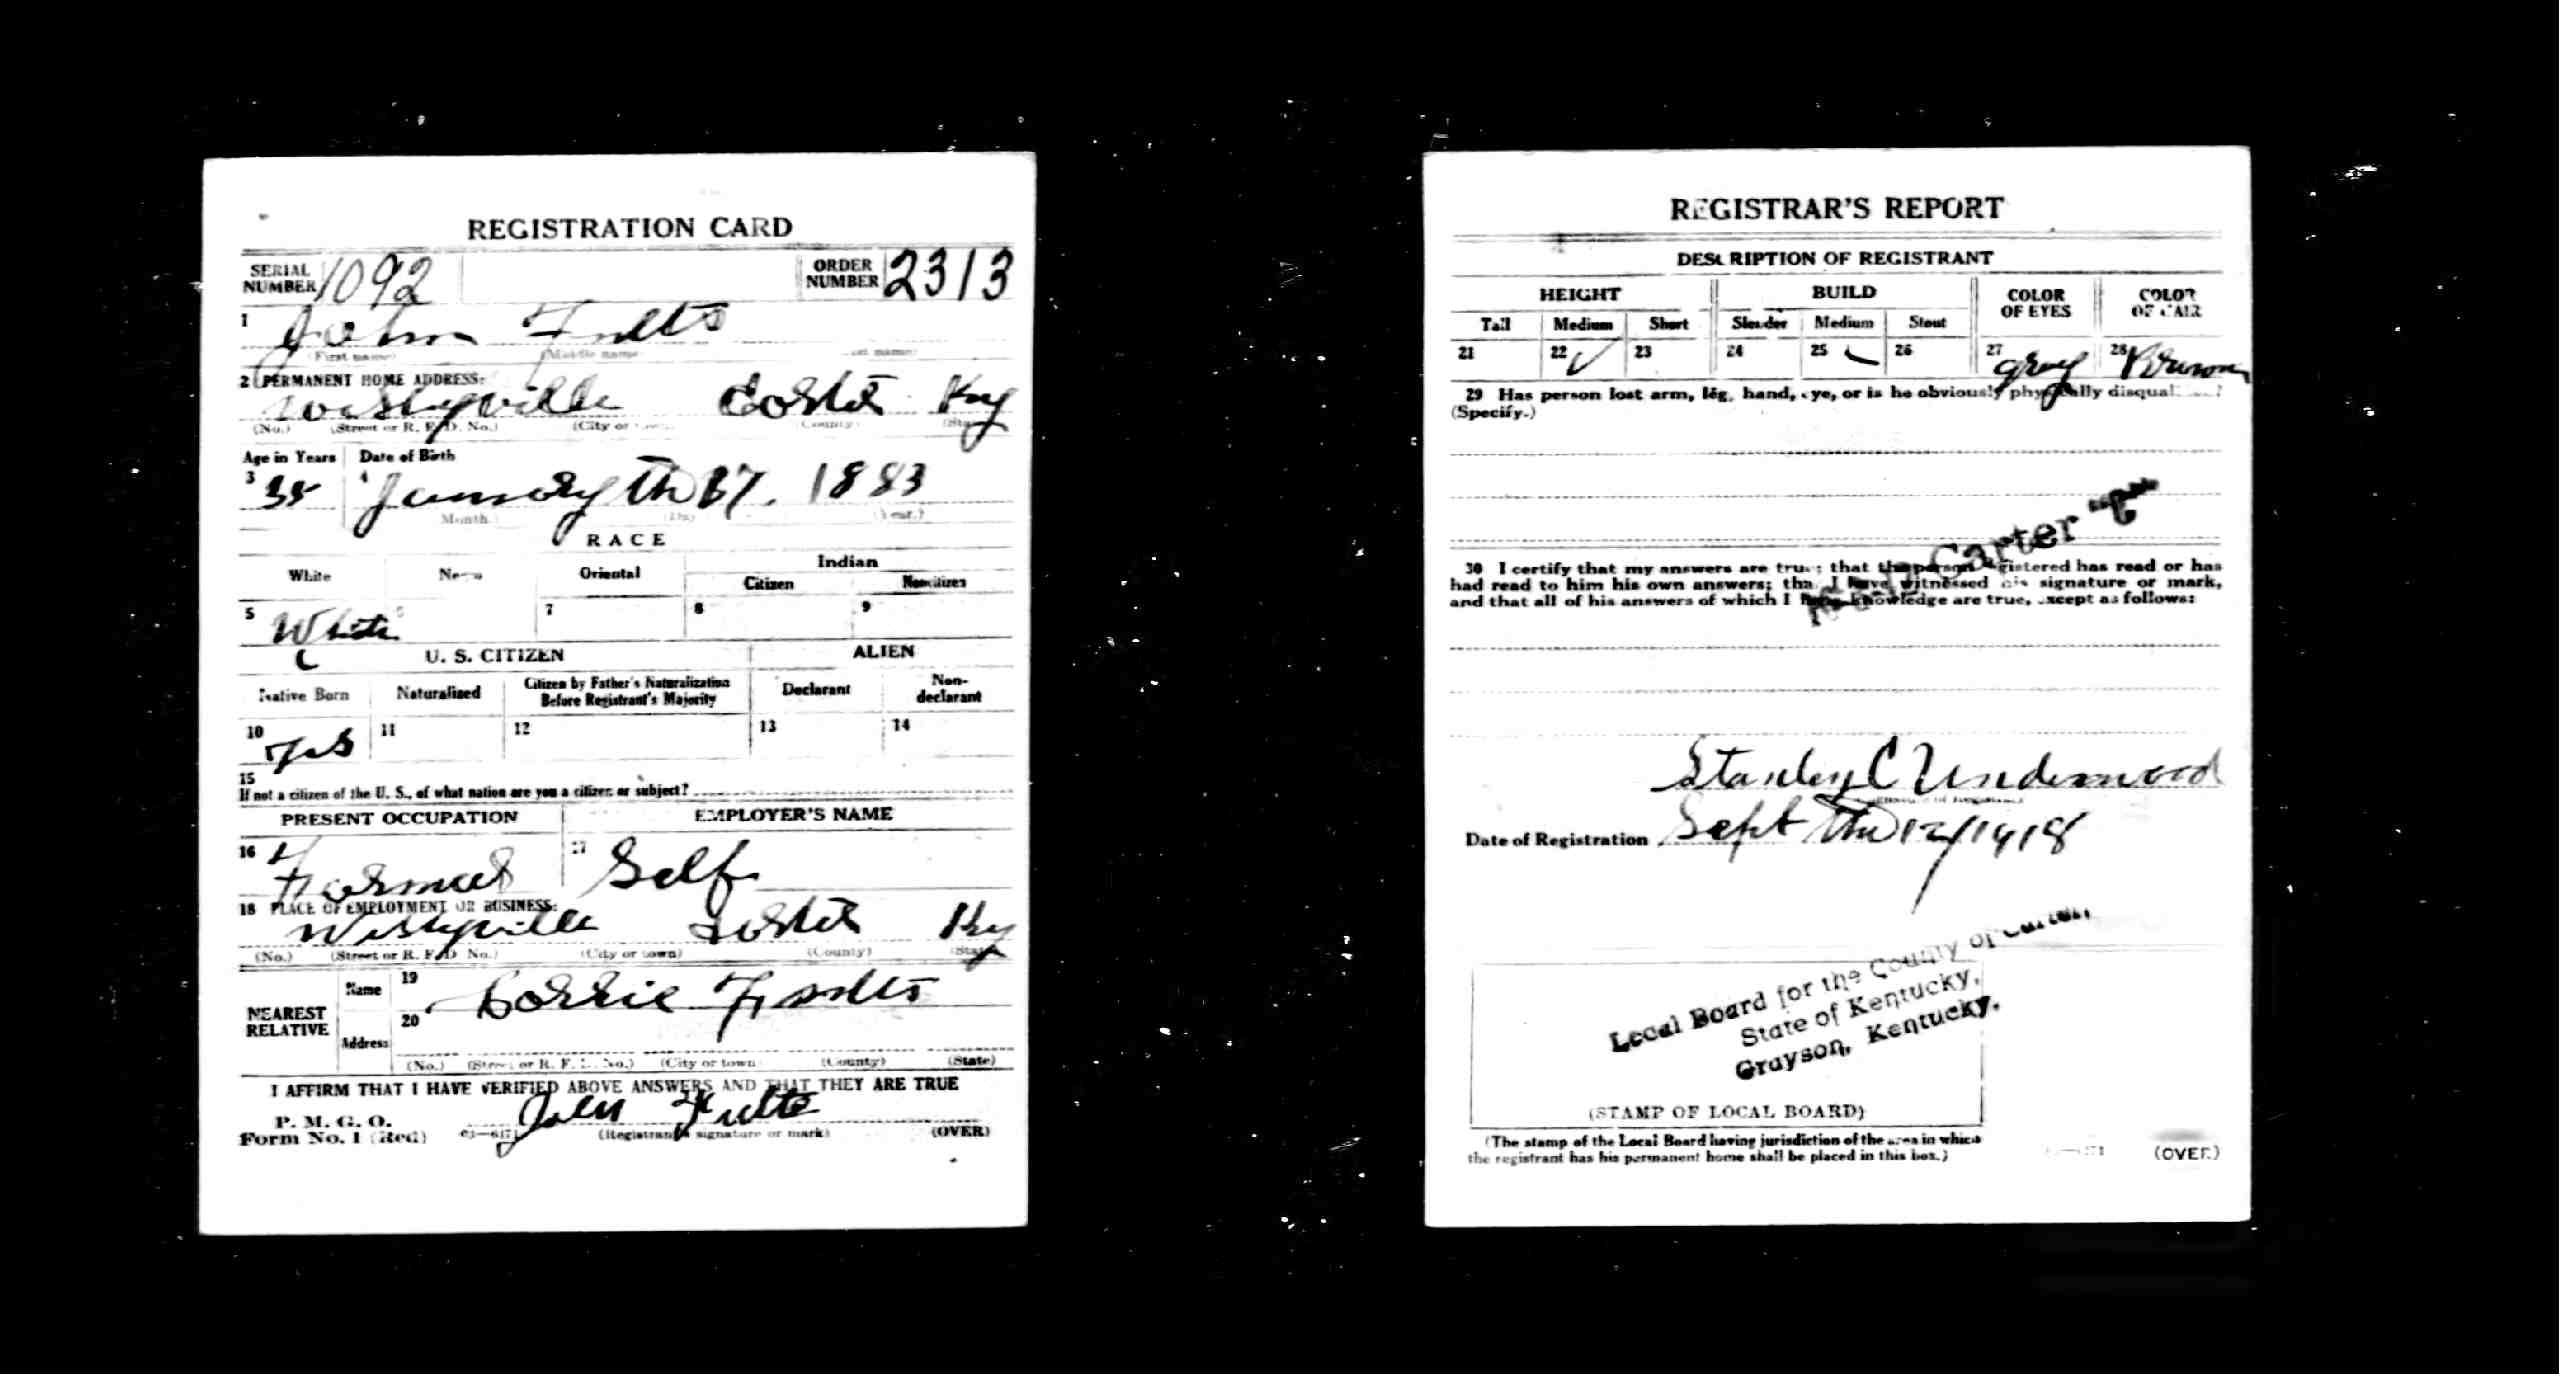 REGISTRATION CARD
SERIAL NUMBER 1092 ORDER NUMBER 2313
1 John Fults
(First name) (Middle name) (Last name)
2 PERMANENT HOME ADDRESS:
Wesleyville Carter Ky
(No.) (Street or R. F. D. No.) (City or town) (County) (State)
Age in Years Date of Birth
3 35 4 January th 17. 1883
(Month.) (Day.) (Year.)
RACE
White Negro Oriental Indian
Citizen Noncitizen
5 White 7 8 9
U. S. CITIZEN ALIEN
Native Born Naturalized Citizen by Father's Naturalization Before Registrant's Majority Declarant Non-declarant
10 yes 11 12 13 14
15
If not a citizen of the U. S., of what nation are you a citizen or subject?
PRESENT OCCUPATION EMPLOYER'S NAME
16 Farmer 17 Self
18 PLACE OF EMPLOYMENT OR BUSINESS:
Wesleyville Carter Ky
(No.) (Street or R. F. D. No.) (City or town) (County) (State)
NEAREST RELATIVE Name 19 Fults
Address 20
(No.) (Street or R. F. D. No.) (City or town) (County) (State)
I AFFIRM THAT I HAVE VERIFIED ABOVE ANSWERS AND THAT THEY ARE TRUE
P. M. G. O.
Form No. 1 (Red) John Fults
(Registrant's signature or mark) (OVER)
REGISTRAR'S REPORT
DESCRIPTION OF REGISTRANT
HEIGHT BUILD COLOR OF EYES COLOR OF HAIR
Tall Medium Short Slender Medium Stout
21 22 ✓ 23 24 25 ✓ 26 27 gray 28 Brown
29 Has person lost arm, leg, hand, eye, or is he obviously physically disqualified?
(Specify.)
Carter
30 I certify that my answers are true; that the person registered has read or has
had read to him his own answers; that I have witnessed his signature or mark,
and that all of his answers of which I have knowledge are true, except as follows:
Stanley C Underwood
Date of Registration Sept th 12/1918
Local Board for the County of Carter,
State of Kentucky,
Grayson, Kentucky.
(STAMP OF LOCAL BOARD)
(The stamp of the Local Board having jurisdiction of the area in which
the registrant has his permanent home shall be placed in this box.)
(OVER)